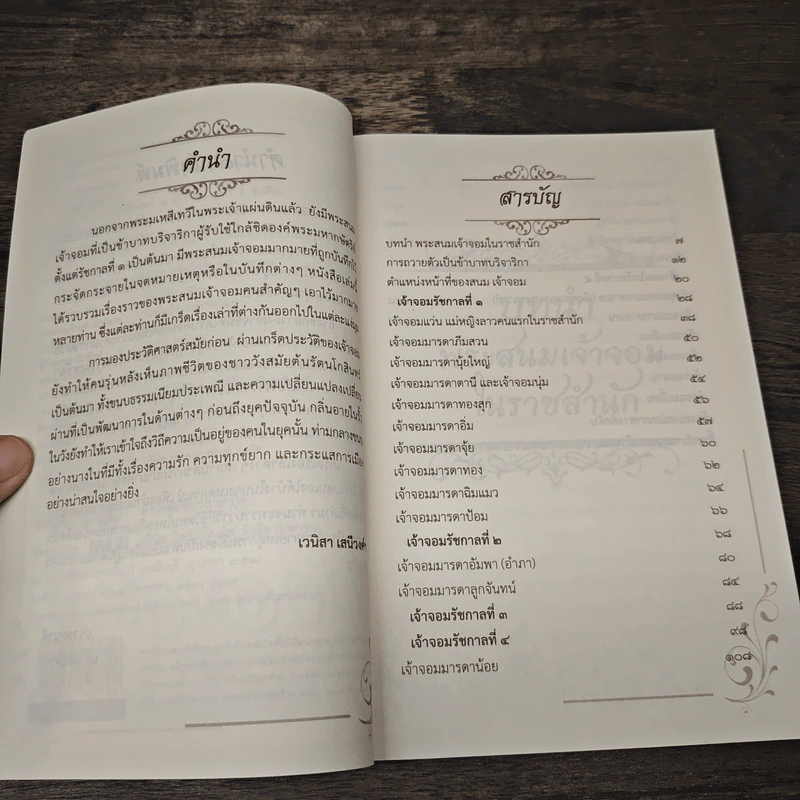 คำนำ
นอกจากพระมเหสีเทวีในพระเจ้าแผ่นดินแล้ว ยังมีพระสนม
เจ้าจอมที่เป็นข้าบาทบริจาริกาผู้รับใช้ใกล้ชิดองค์พระมหากษัตริย์
ตั้งแต่รัชกาลที่ ๑ เป็นต้นมา มีพระสนมเจ้าจอมมากมายที่ถูกบันทึกไว้
กระจัดกระจายในจดหมายเหตุหรือในบันทึกต่างๆ หนังสือเล่มนี้
ได้รวบรวมเรื่องราวของพระสนมเจ้าจอมคนสำคัญๆ เอาไว้มากมาย
หลายท่าน ซึ่งแต่ละท่านก็มีเกร็ดเรื่องเล่าที่ต่างกันออกไปในแต่ละ
การมองประวัติศาสตร์สมัยก่อน ผ่านเกร็ดประวัติของเจ้าจอม
ยังทำให้คนรุ่นหลังเห็นภาพชีวิตของชาววังสมัยต้นรัตนโกสินทร์
เป็นต้นมา ทั้งขนบธรรมเนียมประเพณี และความเปลี่ยนแปลง
ผ่านที่เป็นพัฒนาการในด้านต่างๆ ก่อนถึงยุคปัจจุบัน กลิ่นอายในรั้ว
ในวังยังทำให้เราเข้าใจถึงวิถีความเป็นอยู่ของคนในยุคนั้น ท่ามกลาง
อย่างนางในที่มีทั้งเรื่องความรัก ความทุกข์ยาก และกระแสการเมือง
อย่างน่าสนใจอย่างยิ่ง
เวนิสา เสนีวงศ์ฯ
สารบัญ
บทนำ พระสนมเจ้าจอมในราชสำนัก ๗
การถวายตัวเป็นข้าบาทบริจาริกา ๑๒
ตำแหน่งหน้าที่ของสนม เจ้าจอม ๒๐
เจ้าจอมรัชกาลที่ ๑ ๒๘
เจ้าจอมแว่น แม่หญิงลาวคนแรกในราชสำนัก ๓๘
เจ้าจอมมารดาภีมสวน ๕๐
เจ้าจอมมารดานุ้ยใหญ่ ๕๒
เจ้าจอมมารดาตานี และเจ้าจอมนุ่ม ๕๔
เจ้าจอมมารดาทองสุก ๕๖
เจ้าจอมมารดาอิ่ม ๕๗
เจ้าจอมมารดาจุ้ย ๖๐
เจ้าจอมมารดาทอง ๖๒
เจ้าจอมมารดาฉิมแมว ๖๔
เจ้าจอมมารดาป้อม ๖๖
เจ้าจอมรัชกาลที่ ๒ ๖๘
เจ้าจอมมารดาอัมพา (อำภา) ๘๐
เจ้าจอมมารดาลูกจันทน์ ๘๔
เจ้าจอมรัชกาลที่ ๓ ๘๘
เจ้าจอมรัชกาลที่ ๔ ๙๘
เจ้าจอมมารดาน้อย ๑๐๘